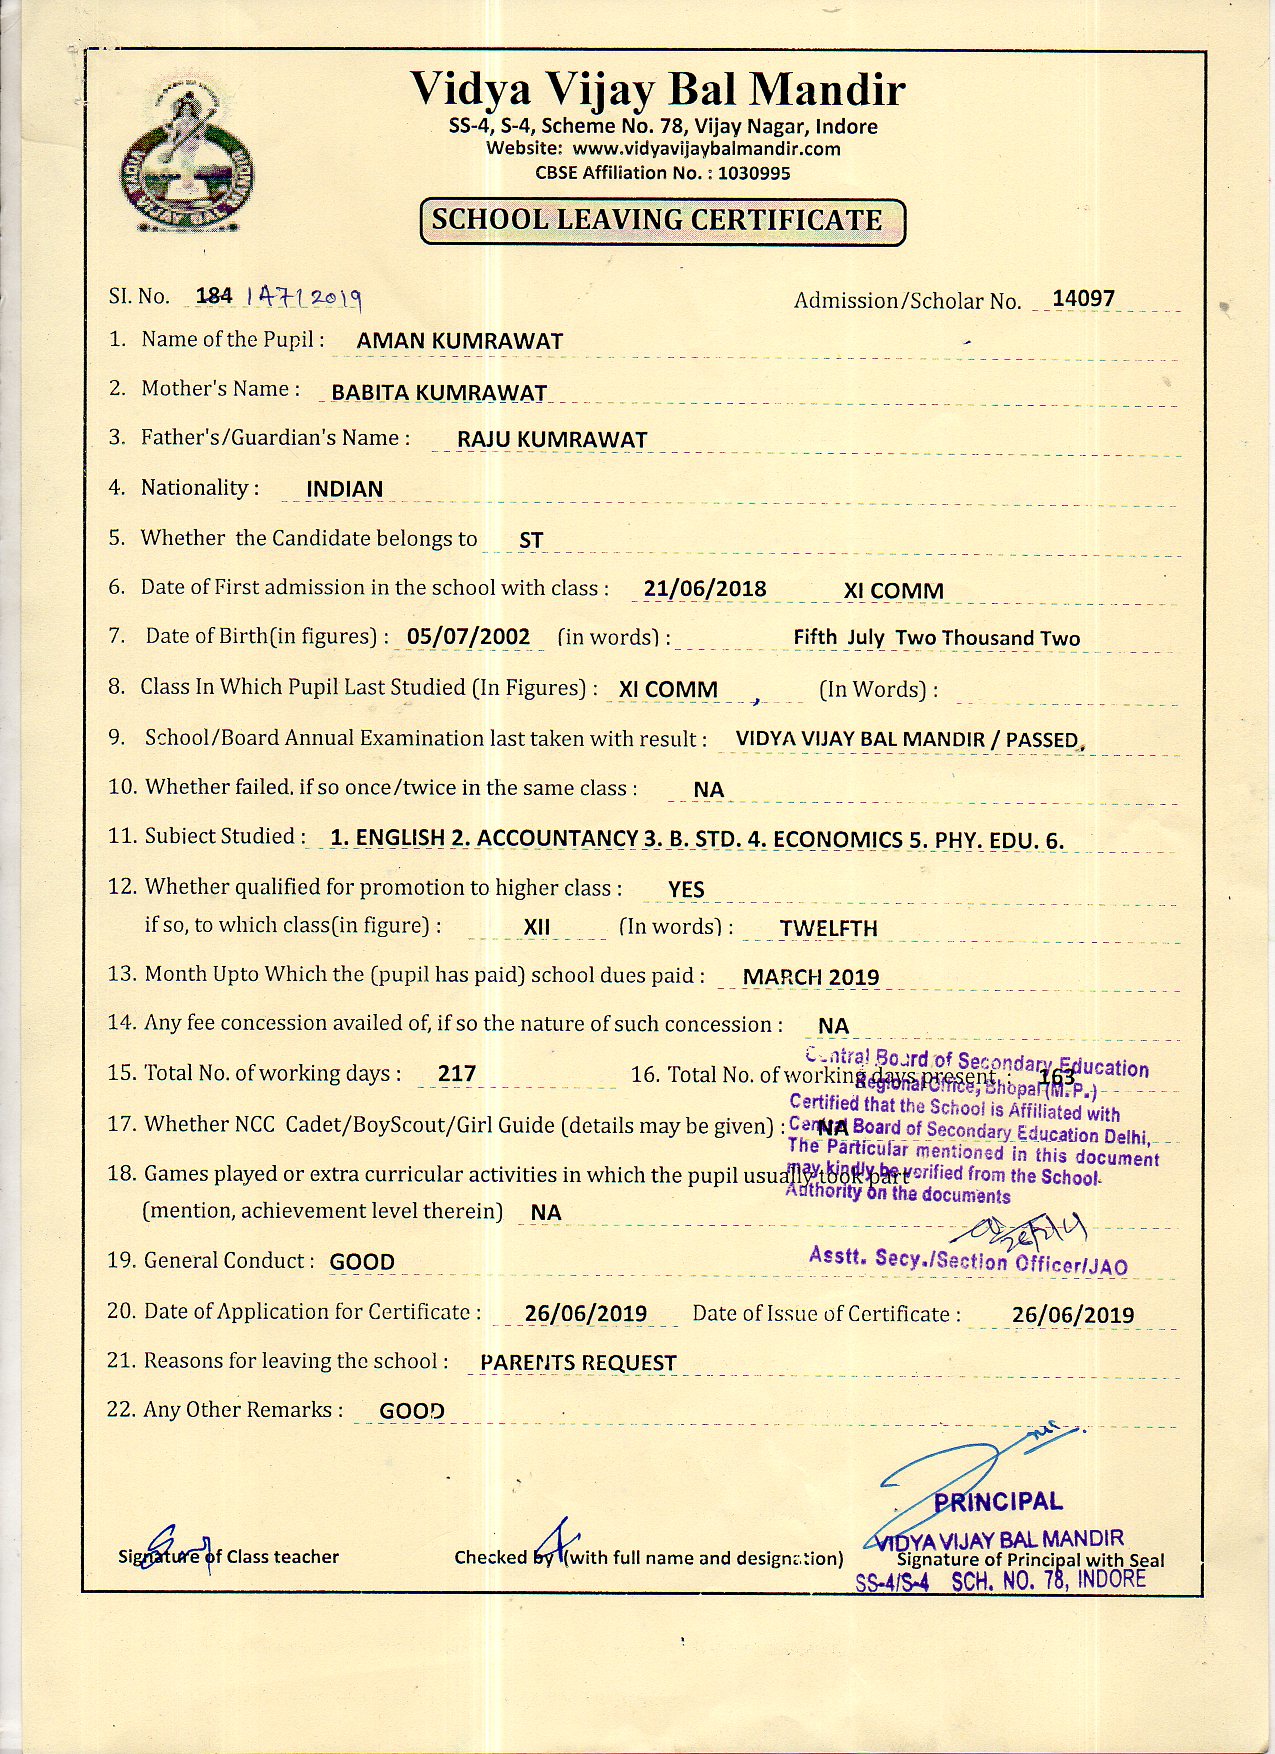 Vidya Vijay Bal Mandir
SS-4, S-4, Scheme No. 78, Vijay Nagar, Indore
Website: www.vidyavijaybalmandir.com
CBSE Affiliation No. : 1030995
SCHOOL LEAVING CERTIFICATE
VIDYA VIJAY BAL MANDIR
SI. No. 184 1471 2019 Admission/Scholar No. 14097
1. Name of the Pupil : AMAN KUMRAWAT
2. Mother's Name : BABITA KUMRAWAT
3. Father's/Guardian's Name : RAJU KUMRAWAT
4. Nationality : INDIAN
5. Whether the Candidate belongs to ST
6. Date of First admission in the school with class : 21/06/2018 XI COMM
7. Date of Birth(in figures) : 05/07/2002 (in words) : Fifth July Two Thousand Two
8. Class In Which Pupil Last Studied (In Figures) : XI COMM , (In Words) :
9. School/Board Annual Examination last taken with result : VIDYA VIJAY BAL MANDIR / PASSED,
10. Whether failed, if so once/twice in the same class : NA
11. Subject Studied : 1. ENGLISH 2. ACCOUNTANCY 3. B. STD. 4. ECONOMICS 5. PHY. EDU. 6.
12. Whether qualified for promotion to higher class : YES
if so, to which class(in figure) : XII (In words) : TWELFTH
13. Month Upto Which the (pupil has paid) school dues paid : MARCH 2019
14. Any fee concession availed of, if so the nature of such concession : NA
15. Total No. of working days : 217 16. Total No. of working days present : 163
17. Whether NCC Cadet/BoyScout/Girl Guide (details may be given) : NA
18. Games played or extra curricular activities in which the pupil usually took part
(mention, achievement level therein) NA
Central Board of Secondary Education
Regional Office, Bhopal (M.P.)
Certified that the School is Affiliated with
Central Board of Secondary Education Delhi,
The Particular mentioned in this document
may kindly be verified from the School
Authority on the documents
Asstt. Secy./Section Officer/JAO
19. General Conduct : GOOD
20. Date of Application for Certificate : 26/06/2019 Date of Issue of Certificate : 26/06/2019
21. Reasons for leaving the school : PARENTS REQUEST
22. Any Other Remarks : GOOD
PRINCIPAL
VIDYA VIJAY BAL MANDIR
Signature of Class teacher Checked by (with full name and designation) Signature of Principal with Seal
SS-4/S-4 SCH. NO. 78, INDORE